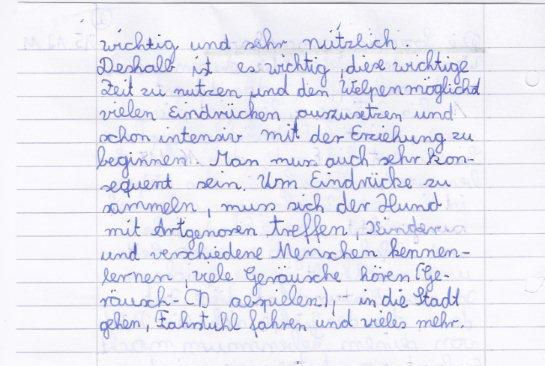 wichtig und sehr nützlich.
Deshalb ist es wichtig, diese wichtige
Zeit zu nutzen und den Welpen möglichst
vielen Eindrücken auszusetzen und
schon intensiv mit der Erziehung zu
beginnen. Man muss auch sehr kon-
sequent sein. Um Eindrücke zu
sammeln, muss sich der Hund
mit Artgenossen treffen, Kinder
und verschiedene Menschen kennen-
lernen, viele Geräusche hören (Ge-
räusch-CD abspielen), - in die Stadt
gehen, Fahrstuhl fahren und vieles mehr.